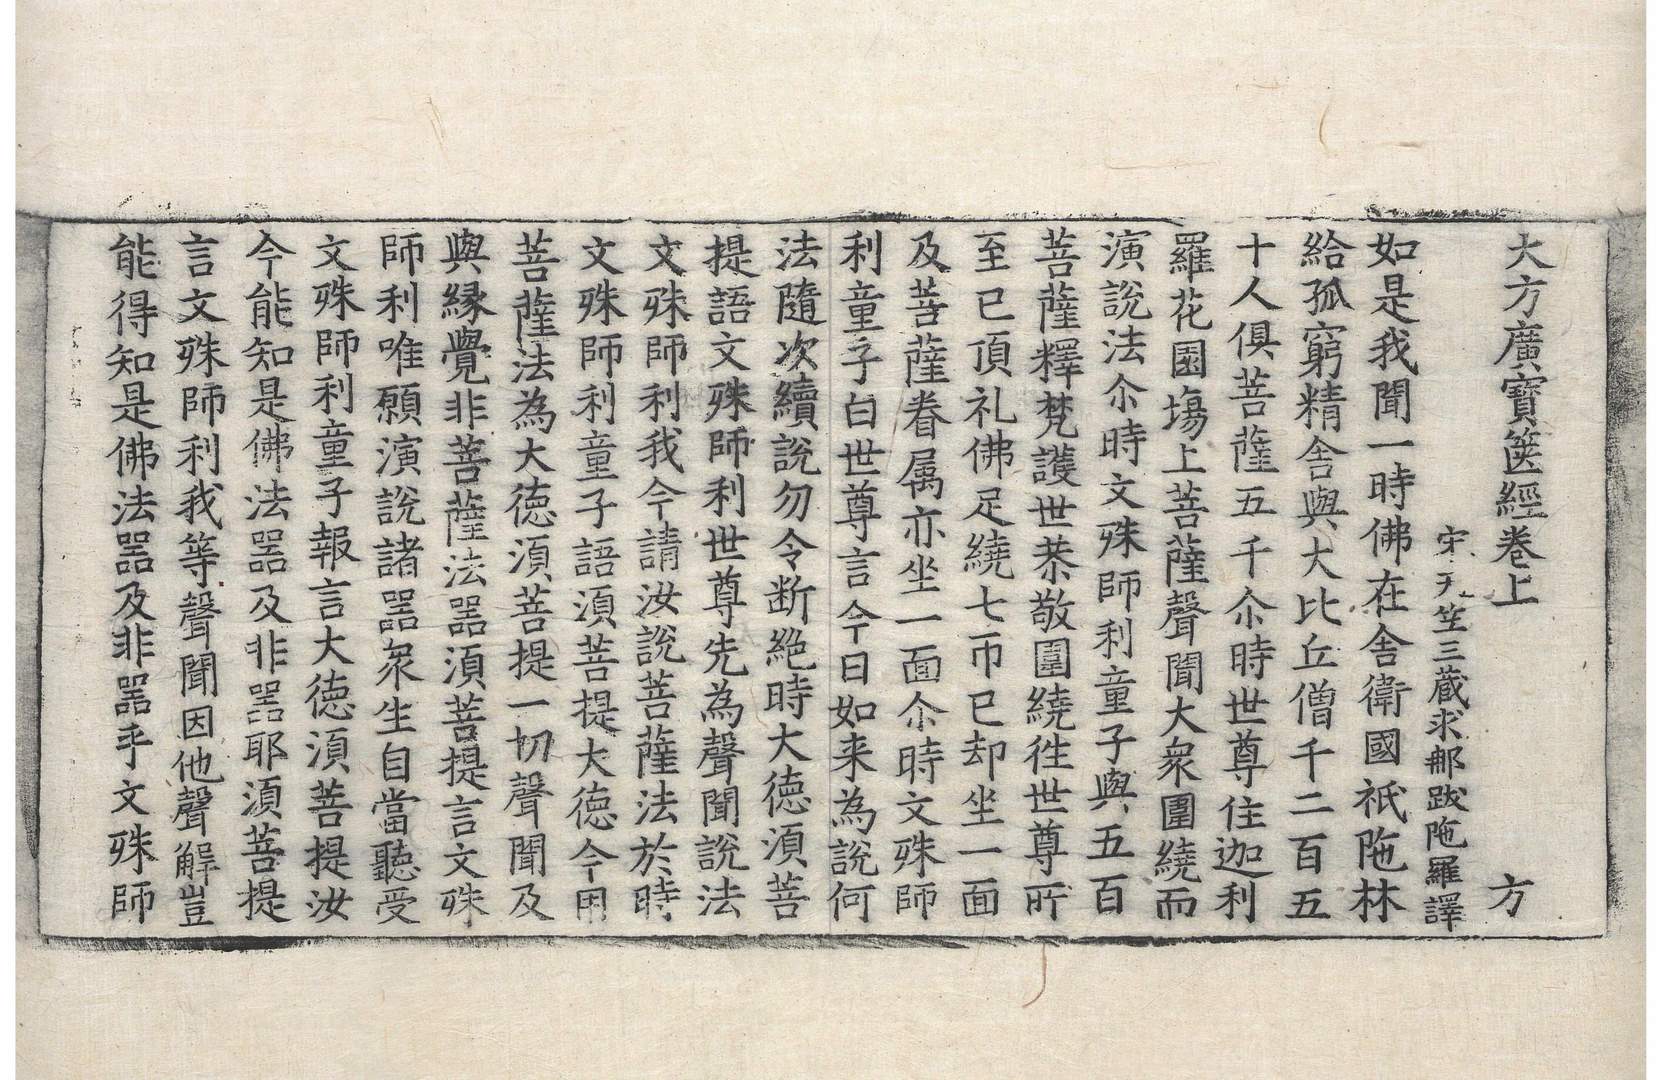 大方廣寶篋經卷上 方
宋天竺三藏求那跋陁羅譯
如是我聞一時佛在舍衛國祇陁林
給孤窮精舍與大比丘僧千二百五
十人俱菩薩五千尒時世尊住迦利
羅花園塲上菩薩聲聞大衆圍繞而
演說法尒時文殊師利童子與五百
菩薩釋梵護世恭敬圍繞徃世尊所
至已頂礼佛足繞七帀已却坐一面
及菩薩眷属亦坐一面尒時文殊師
利童子白世尊言今日如来為說何
法隨次續說勿令断絶時大德湏菩
提語文殊師利世尊先為聲聞說法
文殊師利我今請汝說菩薩法於時
文殊師利童子語湏菩提大德今用
菩薩法為大德湏菩提一切聲聞及
與縁覺非菩薩法器湏菩提言文殊
師利唯願演說諸器衆生自當聽受
文殊師利童子報言大德湏菩提汝
今能知是佛法器及非器耶湏菩提
言文殊師利我等聲聞因他聲解豈
能得知是佛法器及非器乎文殊師